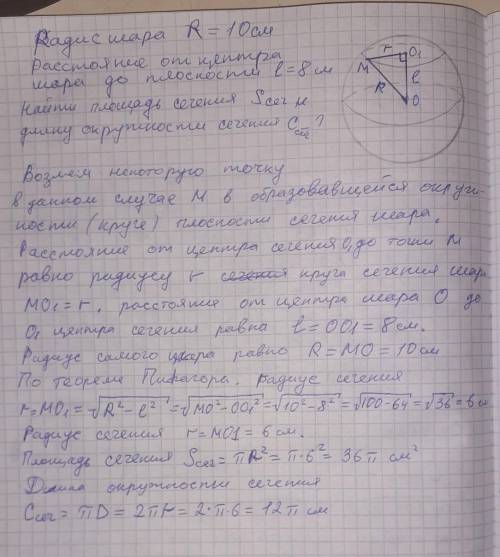 Радис шара R = 10см
Расстояние от центра
шара до плоскости l = 8 м
Найти площадь сечения Sсеч и
длину окружности сечения Cсеч ?
r
O₁
M
R
l
O
Возмем некоторую точку
в данном случае M в образовавшейся окруж-
ности (круге) плоскости сечения шара.
Расстояние от центра сечения O₁ до точки M
равно радиусу r сечения круга сечения шар
MO₁ = r, расстояние от центра шара O до
O₁ центра сечения равна l = OO1 = 8 см.
Радиус самого шара равно R = MO = 10 см
По теореме Пифагора. радиус сечения
r = MO₁ = √R² - l² = √MO² - OO₁² = √10² - 8² = √100 - 64 = √36 = 6 см
Радиус сечения r = MO1 = 6 см.
Площадь сечения Sсеч = πR² = π·6² = 36π см²
Длина окружности сечения
Cсеч = πD = 2πr = 2·π·6 = 12π см